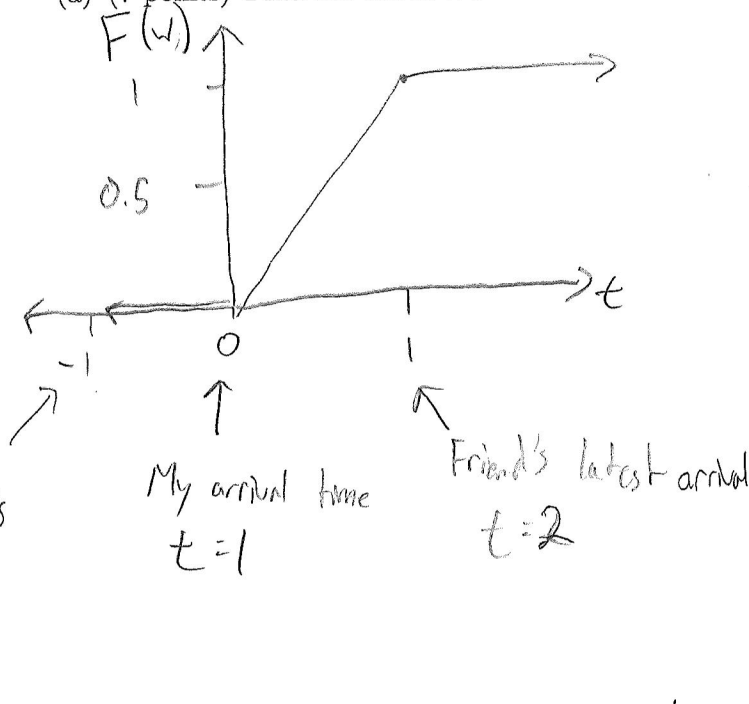 F(W)
1
0.5
t
-1
0
1
My arrival time
t=1
Friend's latest arrival
t=2